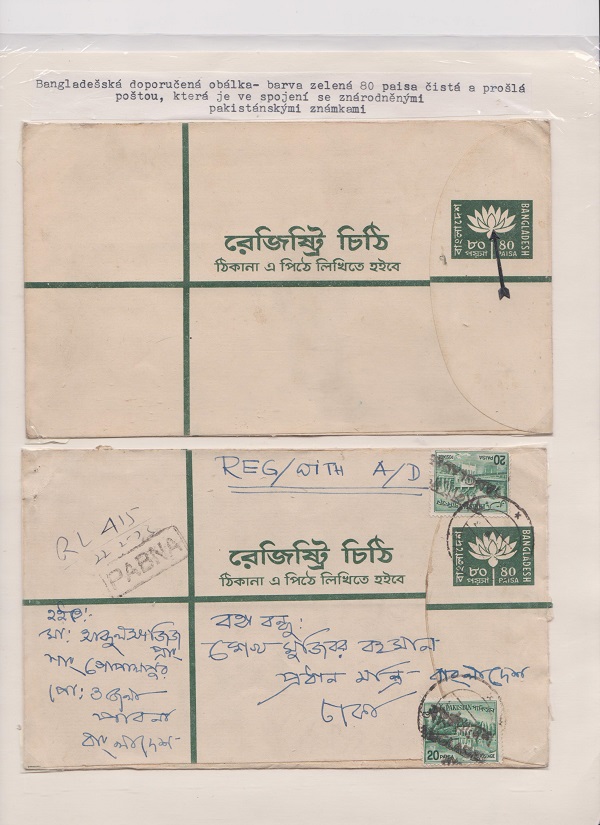 Bangladešská doporučená obálka- barva zelená 80 paisa čistá a prošlá
poštou, která je ve spojení se znárodněnými
pakistánskými známkami
রেজিষ্ট্রি চিঠি
ঠিকানা এ পিঠে লিখিতে হইবে
বাংলাদেশ
৮০ 80
পয়সা PAISA
BANGLADESH
REG/WITH A/D
20
PAISA
RL 415
PABNA
রেজিষ্ট্রি চিঠি
ঠিকানা এ পিঠে লিখিতে হইবে
বাংলাদেশ
৮০ 80
পয়সা PAISA
BANGLADESH
বঙ্গ বন্ধু:
শেখ মুজিবর রহমান
প্রধান মন্ত্রি বাংলাদেশ
ঢাকা
হইতে:-
সাং গোপালপুর
পো:
পাবনা
বাংলাদেশ
PAKISTAN পাকিস্তান
20 PAISA